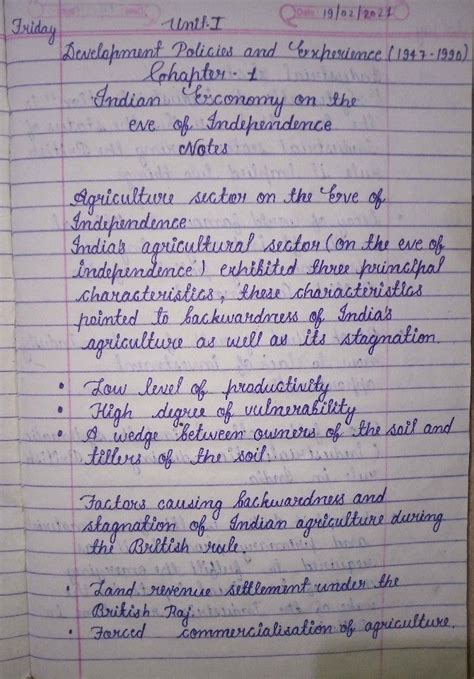 Date: 19/02/2021
Friday
Unit-I
Development Policies and Experience (1947-1990)
Chapter - 1
Indian Economy on the
eve of Independence
Notes
Agriculture sector on the Eve of
Independence
India's agricultural sector (on the eve of
independence) exhibited three principal
characteristics, these characteristics
pointed to backwardness of India's
agriculture as well as its stagnation.
• Low level of productivity
• High degree of vulnerability
• A wedge between owners of the soil and
tillers of the soil.
Factors causing backwardness and
stagnation of Indian agriculture during
the British rule
• Land revenue settlement under the
British Raj
• Forced commercialisation of agriculture.